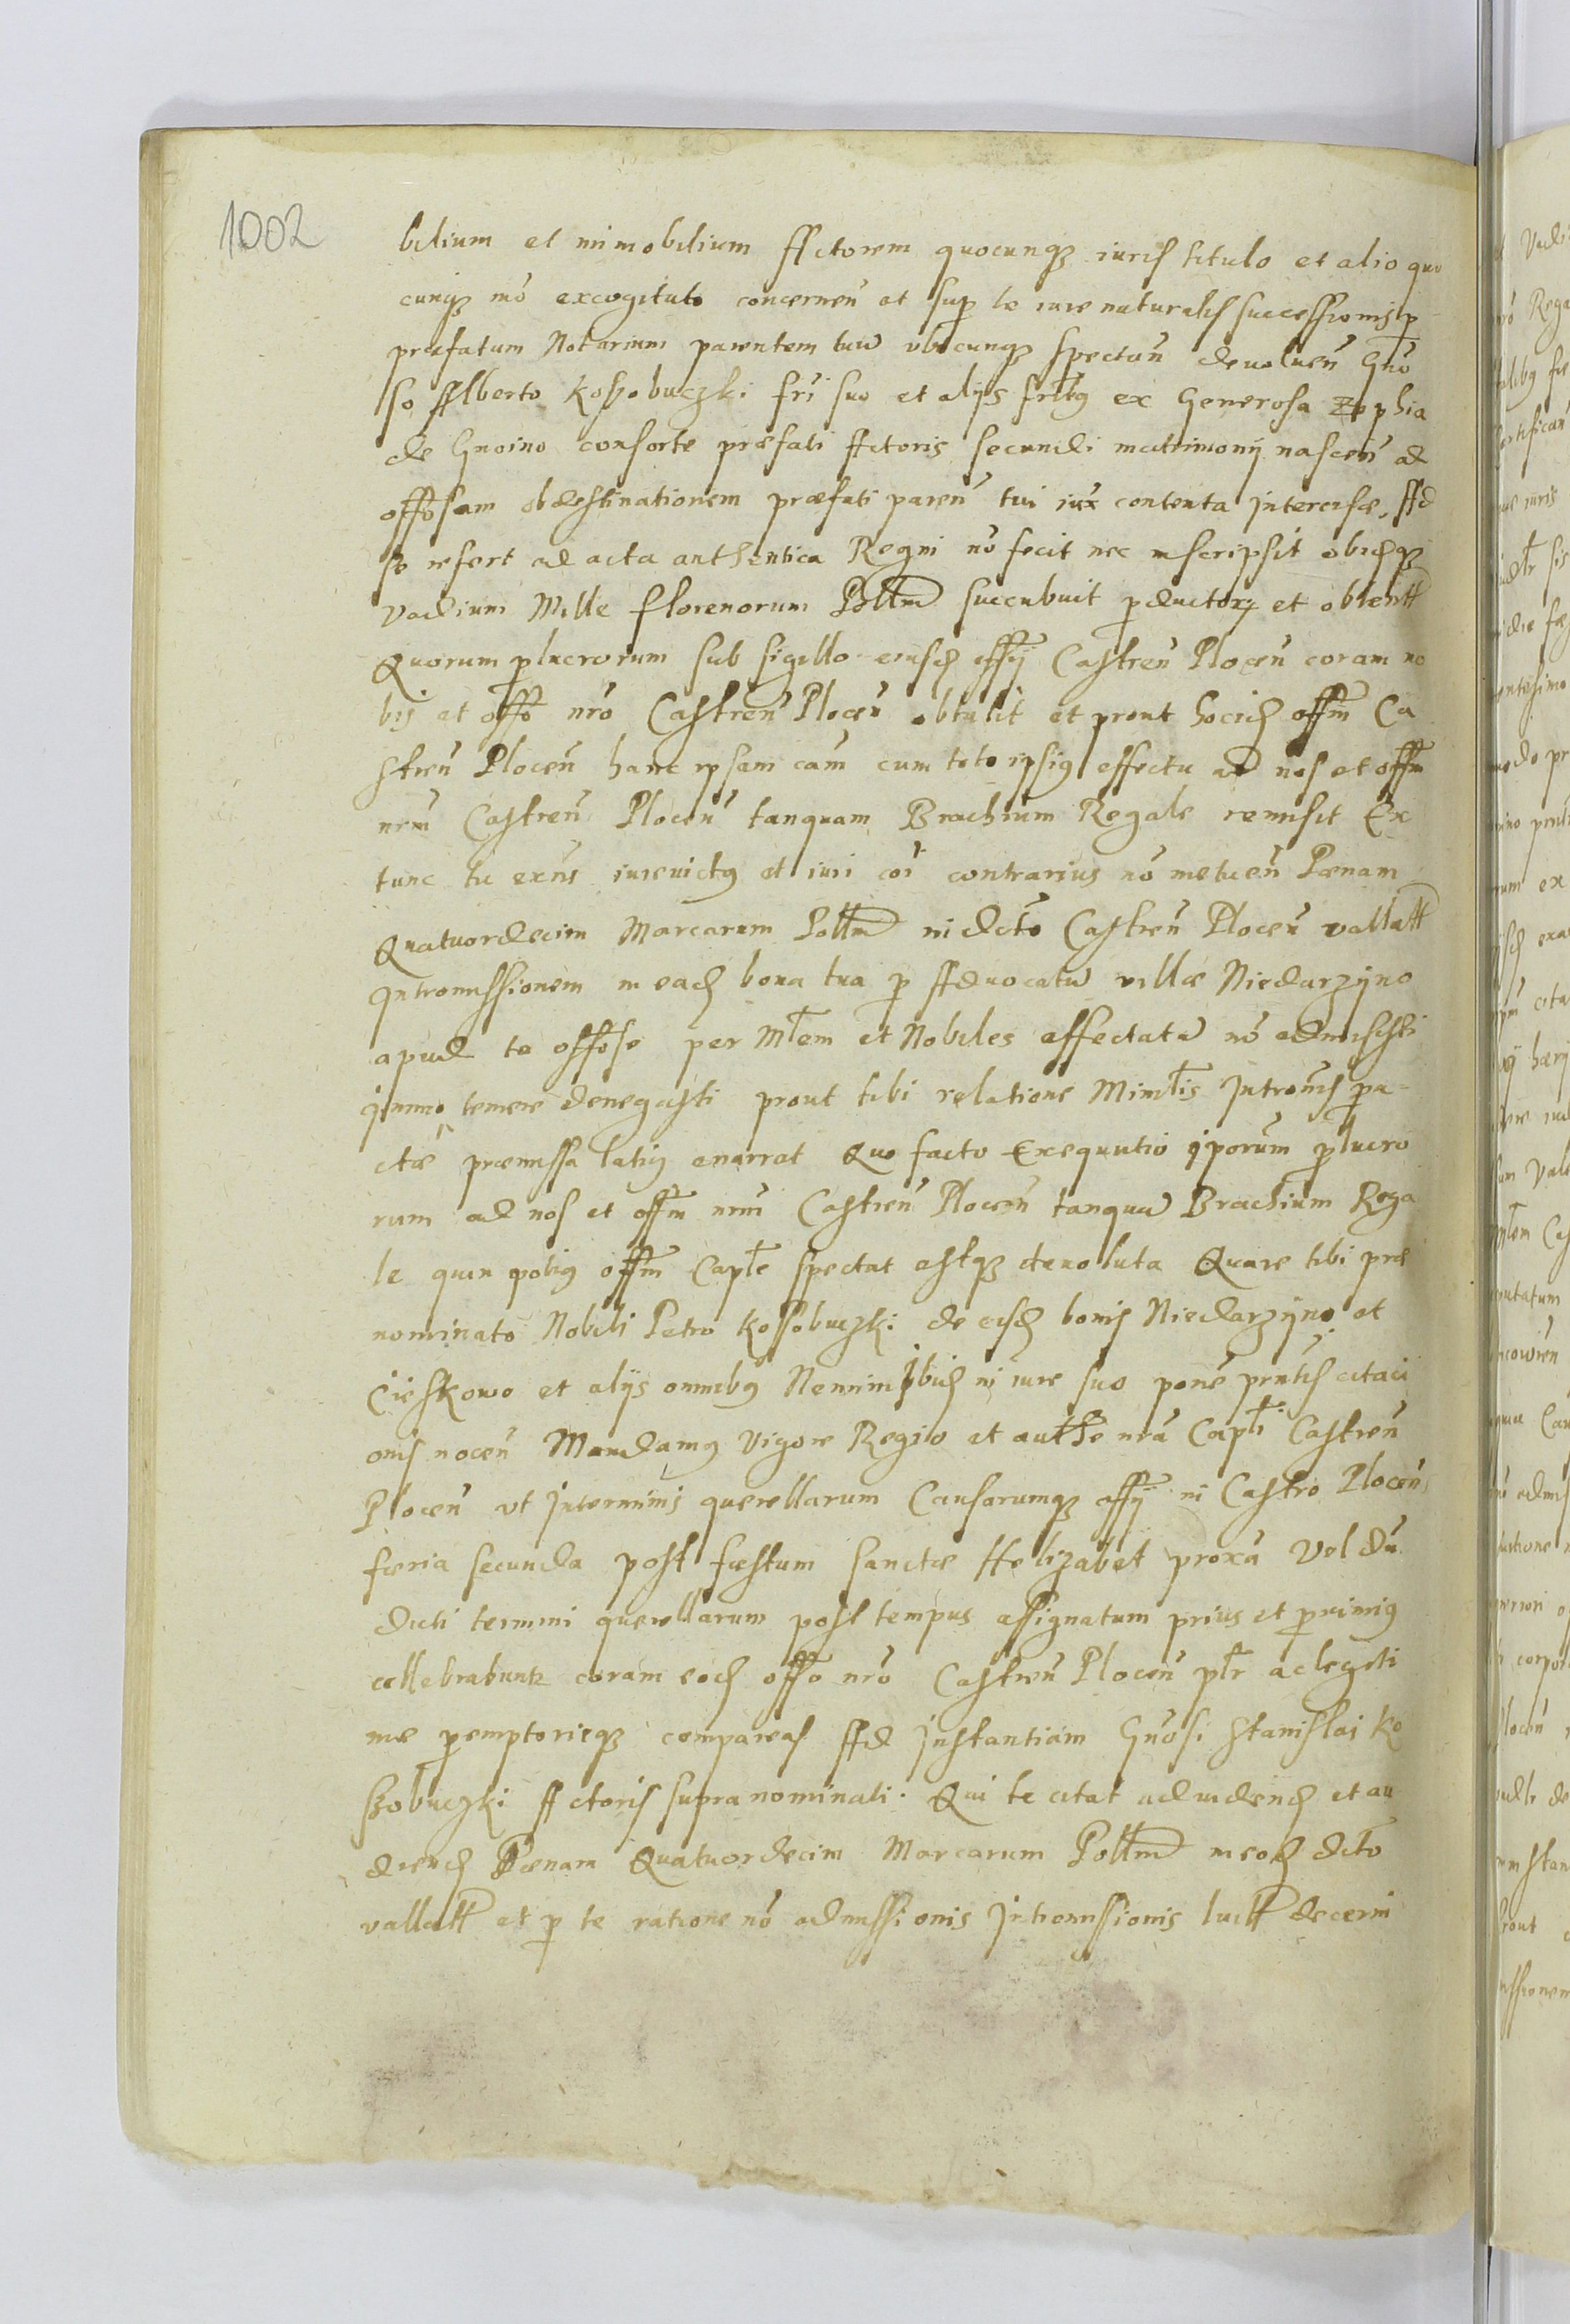 1002
bilium et immobilium Actorem quocunq iuris titulo et alio quo
cunq mō excogitato concernen̄ et sup te iure naturalis successionis p
præfatum Notarium parentem tuū vbicunq spectan̄ deuoluen̄ Gn̄o
so Alberto Koszobuczki fr̄i suo et alijs fr̄ibq ex Generosa Zophia
de Gnoino consorte præfati Actoris secundi matrimonij nascen̄ ad
offosam obdestinationem præfati paren̄ tui iux contenta Intercisæ, Ad
se refert ad acta anthentica Regni nō fecit nec inscripsit obidq
vadium Mille florenorum Polłm succubuit pductorꝝ et obtentł
Quorum plucrorum sub sigillo eiusd offij Castren̄ Plocen̄ coram no
bis et offo nrō Castren̄ Plocen̄ obtulit et prout hocid offm̄ Ca
stren̄ Plocen̄ hanc ipsam cām cum toto ipsiq effectu ad nos et offm̄
nrm̄ Castren̄ Plocen̄ tanquam Brachium Regale remisit Ex
tunc tu exn̄s iureuictq et iuri coī contrarius nō metuen̄ Pænam
Quatuordecim Marcarum Polłm in dcto Castren̄ Plocen̄ vallatł
Intromissionem in ead bona tua p Aduocatū villæ Niedarzyno
apud te offose per Młem et Nobiles affectatā nō admisisti
Immo temere denegasti prout tibi relatione Minłis Intromis pa-
ctæ præmissa latiq enarrat Quo facto Exequutio iporūm plucro
rum ad nos et offm̄ nrm̄ Castren̄ Plocen̄ tanquā Brachium Rega
le quin potiq offm̄ Capłe spectat estq deuoluta Quare tibi præ
nominato Nobili Petro Kossobuczki de eisd bonis Niedarzyno et
Cieskowo et alijs omnibq Nemini ibid in iure suo ponē pn̄tis citaci
onis nocen̄ Mandamq Vigore Regio et authē nrā Capłi Castren̄
Plocen̄ vt Interminis querellarum Causarumq offij in Castro Plocen̄
færia secunda post fæstum sanctæ Helizabet proxā Vel dū
dicti termini querellarum post tempus assignatum prius et pximiq
cellebrabuntꝛ coram eod offo nrō Castren̄ Plocen̄ płr ac legiti
me pemptorieq compareas Ad Instantiam Gn̄osi Stanislai Ko
szobuczki Actoris supra nominati. Qui te citat ad videnđ et au
dienđ Pænam Quatuordecim Marcarum Polłm in eod dcto
vallatł et p te ratione nō admissionis Intromissionis luitł decerni